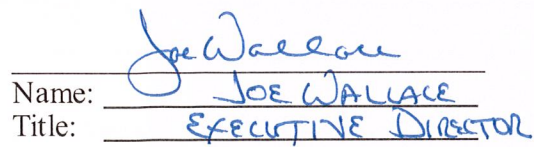 Joe Wallace
Name: JOE WALLACE
Title: EXECUTIVE DIRECTOR